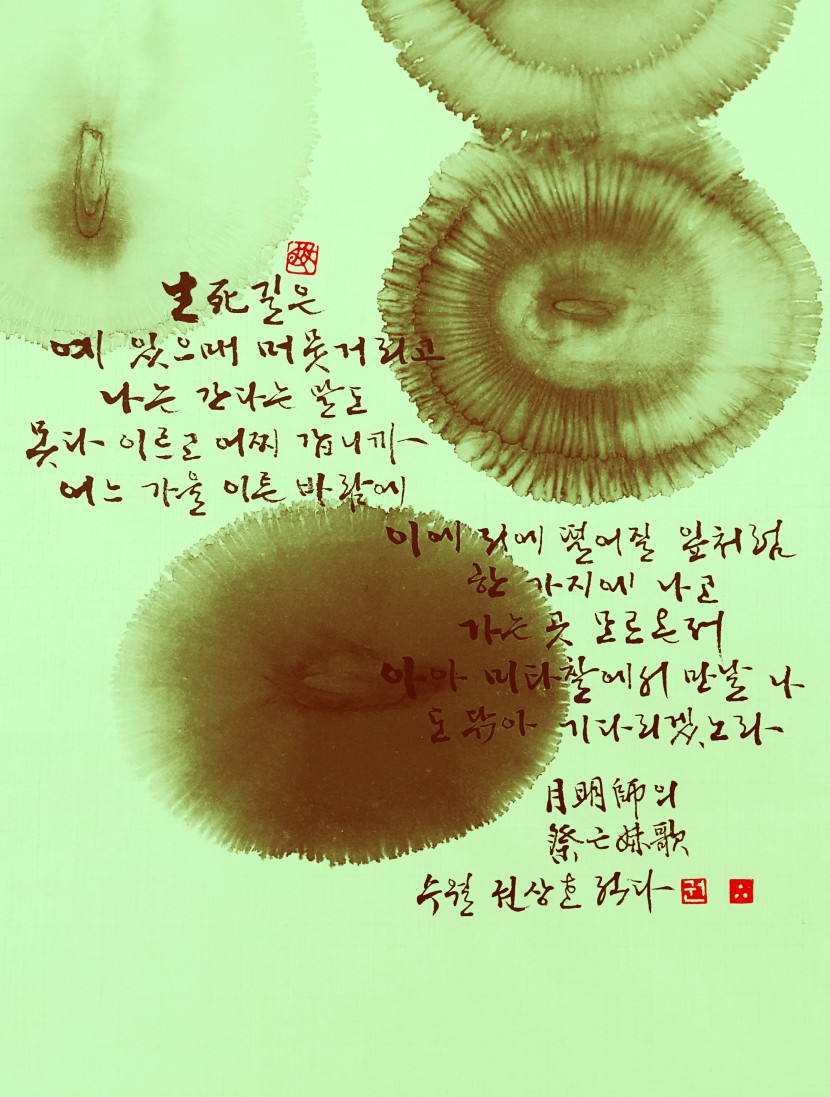 生死길은
예 있으매 머뭇거리고
나는 간다는 말도
못다 이르고 어찌 갑니까
어느 가을 이른 바람에
이에 저에 떨어질 잎처럼
한 가지에 나고
가는 곳 모르온저
아아 미타찰에서 만날 나
도 닦아 기다리겠노라
月明師의
祭亡妹歌
수월 권상호 적다
권